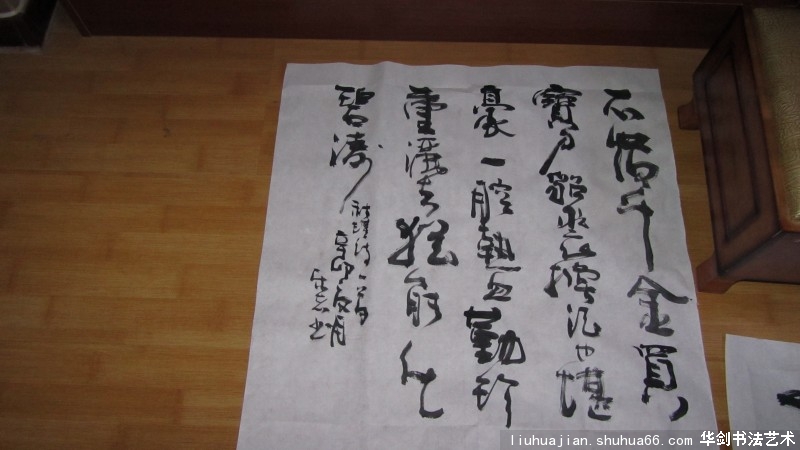 不惜千金買
寶刀貂裘換酒也堪
豪一腔熱血勤珍
重灑去猶能化
碧濤
秋瑾詩一首
辛卯夏月
liuhuajian.shuhua66.com 华剑书法艺术